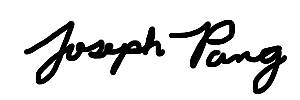 Joseph Pang